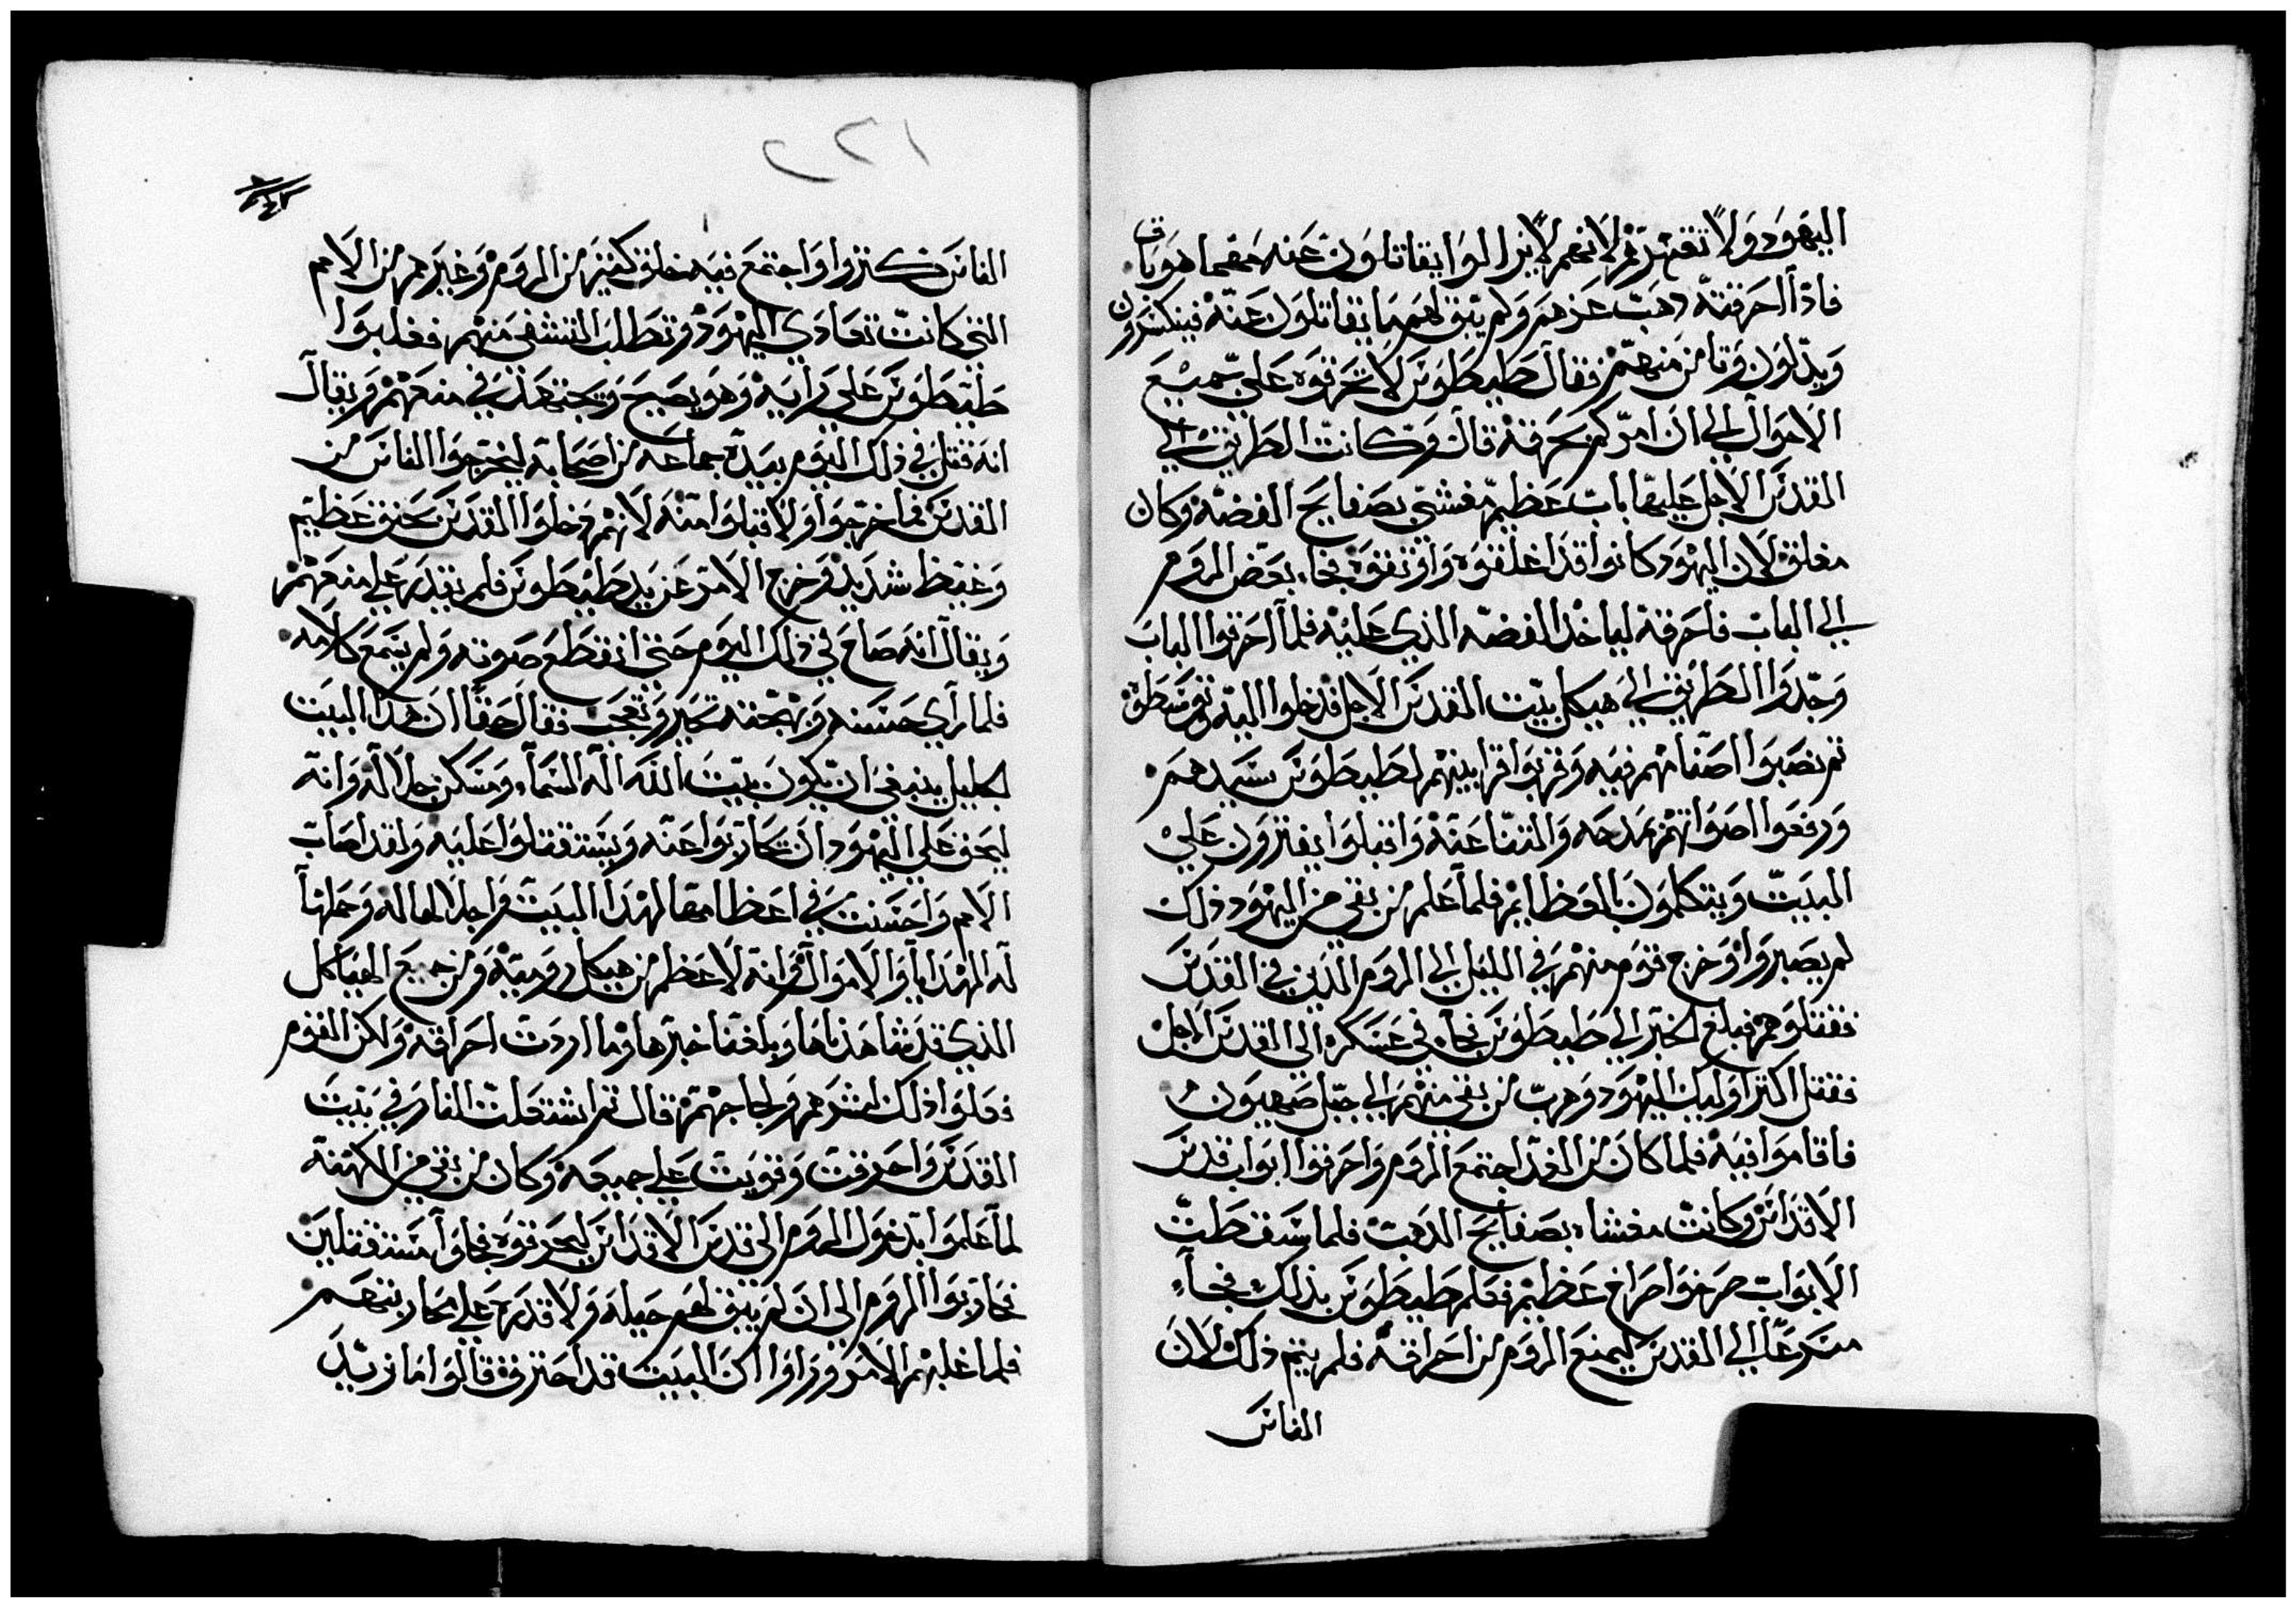 اليهود ولا تقهرهم لانهم لا يزالوا يقاتلون عنه مهما هو باق
فاذا احرقته ذهب عزهم ولم يبق لهم ما يقاتلون عنه فينكسرون
ويذلون وتامن منهم فقال طيطوس لا تحرقوه على جميع
الاحوال الى ان امركم بحرقه قال وكانت الطريق الى
القدس الاجل عليها باب عظيم مغشي بصفايح الفضه وكان
مغلق لان اليهود كانوا قد اغلقوه واوثقوه فجاء بعض الروم
الي الباب فاحرقه لياخذ الفضه الذي عليه فلما احرقوا الباب
وجدوا الطريق الي هيكل بيت القدس الاجل فدخلوا اليه وتوسطوه
ثم نصبوا اصنامهم فيه وقربوا قرابينهم لطيطوس سيدهم
ورفعوا اصواتهم بمدحه والثنا عنه واقبلوا يفترون علي
البيت ويتكلمون بالعظايم فلما علم من بقي من اليهود ذلك
لم يصبروا وخرج قوم منهم في الليل الي الروم الذين في القدس
فقتلوهم فبلغ الخبر الي طيطوس فجاء في عسكره الى القدس الاجل
فقتل اكثر اوليك اليهود وهرب من بقي منهم الي جبل صهيون
فاقاموا فيه فلما كان من الغد اجتمع الروم واحرقوا ابواب قدس
الاقداس وكانت مغشاه بصفايح الذهب فلما سقطت
الابواب صرخوا صراخ عظيم فعلم طيطوس بذلك فجاء
مسرعا الي القدس ليمنع الروم من احراقه فلم يتم ذلك لان
الناس
٢٢١
الناس كثروا واجتمع فيه خلق كثير من الروم وغيرهم من الامم
التي كانت تعادي اليهود وتطلب التشفي منهم فغلبوا
طيطوس علي رايه وهو يصيح ويجتهد في منعهم ويقال
انه قتل في ذلك اليوم بيده جماعه من اصحابه ليخرجوا الناس من
القدس فما خرجوا ولا قبلوا منه لانهم دخلوا القدس بحنق عظيم
وغيظ شديد وخرج الامر عن يد طيطوس فلم يقدر علي منعهم
ويقال انه صاح في ذلك اليوم حتى انقطع صوته ولم يسمع كلامه
فلما راي حسنه وبهجته تحير وتعجب فقال حقا ان هذا البيت
الجليل ينبغي ان يكون بيت الله اله السماء ومسكن جلاله وانه
ليحق علي اليهود ان يحاربوا عنه ويستقتلوا عليه ولقد اصابت
الامم واحسنت في اعظامها لهذا البيت واجلالها له وحملها
له الهدايا والاموال وانه لاعظم من هيكل روميه ومن جميع الهياكل
الذي قد شاهدناها وبلغنا خبرها وما اردت احراقه ولكن القوم
فعلوا ذلك لشرهم ولجاجهم قال ثم اشتعلت النار في بيت
القدس واحرقت وقويت علي جميعه وكان من بقي من الكهنه
لما علموا بدخول الروم الى قدس الاقداس ليحرقوه فجاوا مستقتلين
فحاربوا الروم الى ان لم يبق لهم حيله ولا قدره علي محاربتهم
فلما غلبهم الامر وراوا ان البيت قد احترق قالوا ما نريد